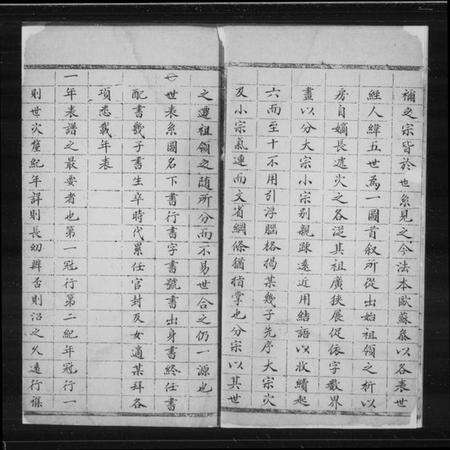 禰之宗皆於世系見之今法本歐蘇叅以各表世
經人緯五世為一圖首叙所從出始祖領之析以
房自嫡長逮次之各從其祖廣扶展促依字數界
畫以分大宗小宗别親疎遠近用結語以收續起
六而至十不用引浮腦格揭某幾子先序大宗次
及小宗氣連而文省綱條猶指掌也分宗以其世
之遷祖領之随所分而不易世合之仍一源也
世表系圖名下書行書字書號書出身書終任書
配書幾子書生卒時代累任官封及女適某拜各
項悉載年表
一年表譜之最要者也第一冠行第二紀年冠行一
則世次釐紀年詳則長幼辨否則沿之久遠行諜